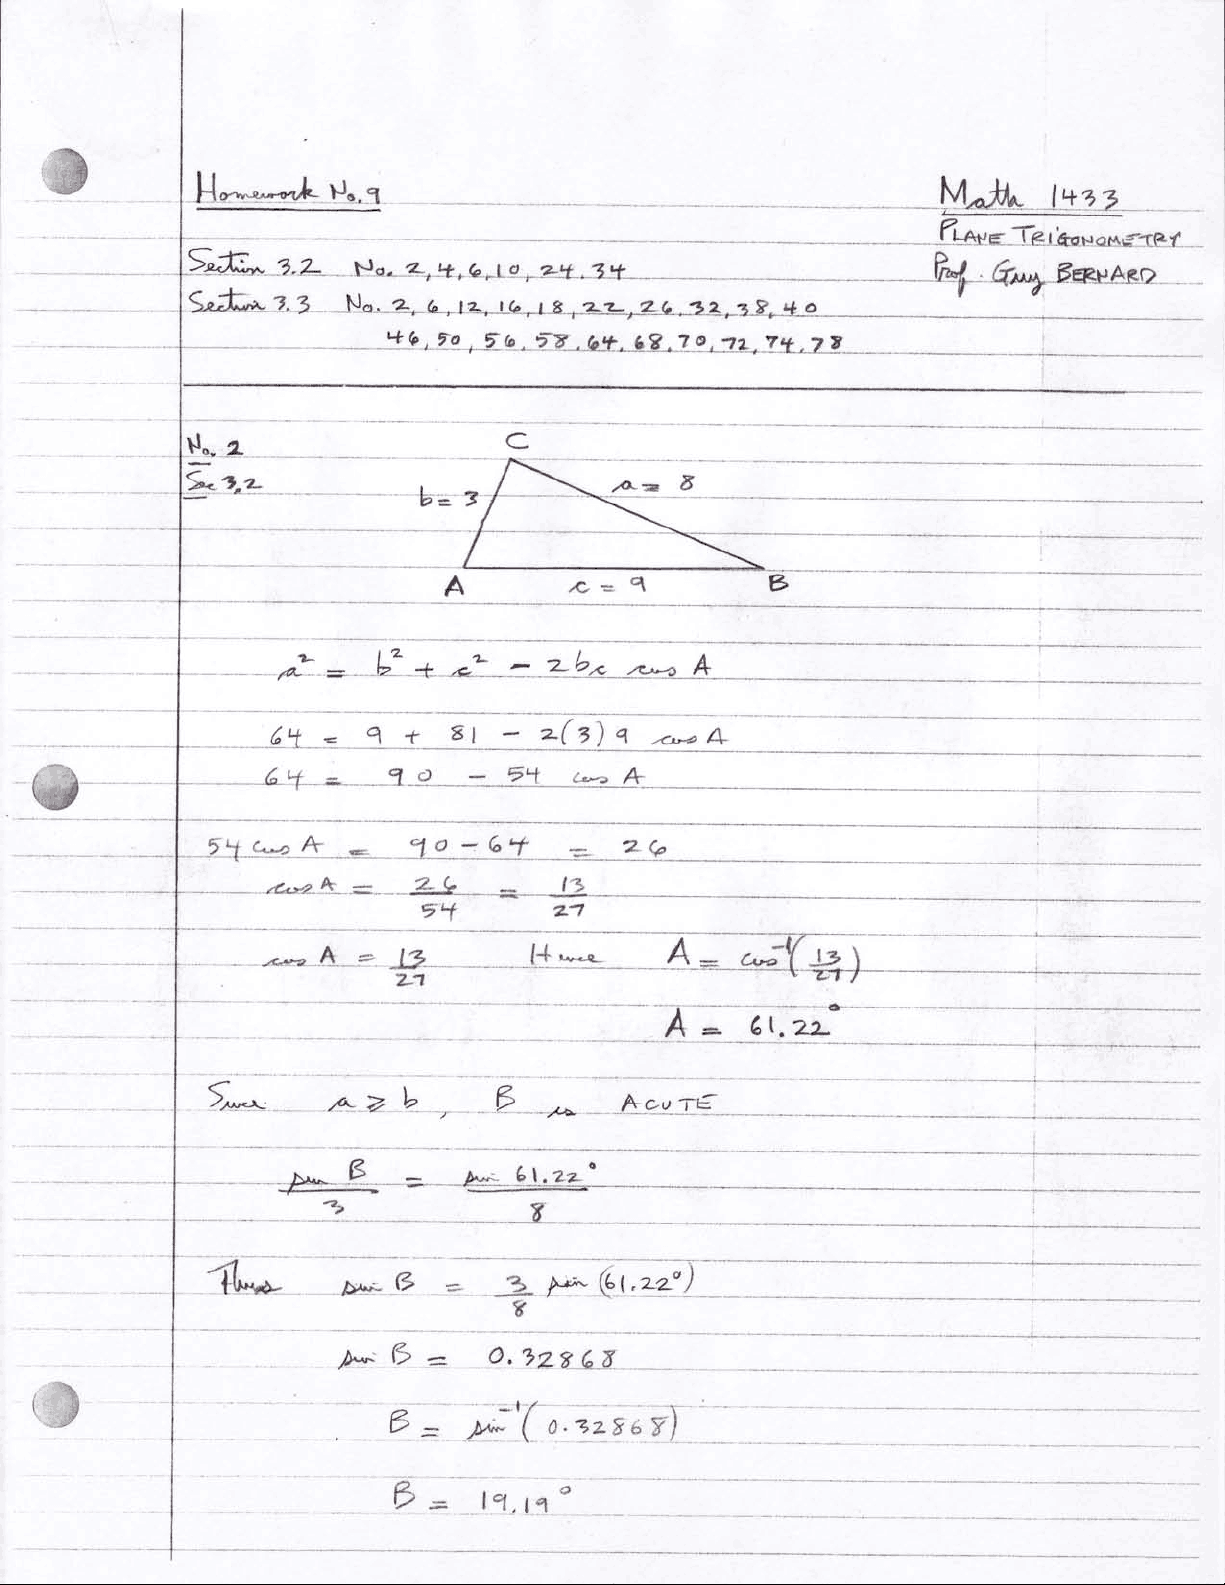 Homework No. 9
Math 1433
PLANE TRIGONOMETRY
Prof. Guy BERNARD
Section 3.2 No. 2, 4, 6, 10, 24, 34
Section 3.3 No. 2, 6, 12, 16, 18, 22, 26, 32, 38, 40
46, 50, 56, 58, 64, 68, 70, 72, 74, 78
No. 2
Sec 3.2
C
b = 3
a = 8
A
c = 9
B
a² = b² + c² - 2bc cos A
64 = 9 + 81 - 2(3)9 cos A
64 = 90 - 54 cos A
54 cos A = 90 - 64 = 26
cos A = 26/54 = 13/27
cos A = 13/27 Hence A = cos⁻¹(13/27)
A = 61.22°
Since a ≥ b, B is ACUTE
sin B/3 = sin 61.22°/8
Thus sin B = 3/8 sin (61.22°)
sin B = 0.32868
B = sin⁻¹(0.32868)
B = 19.19°